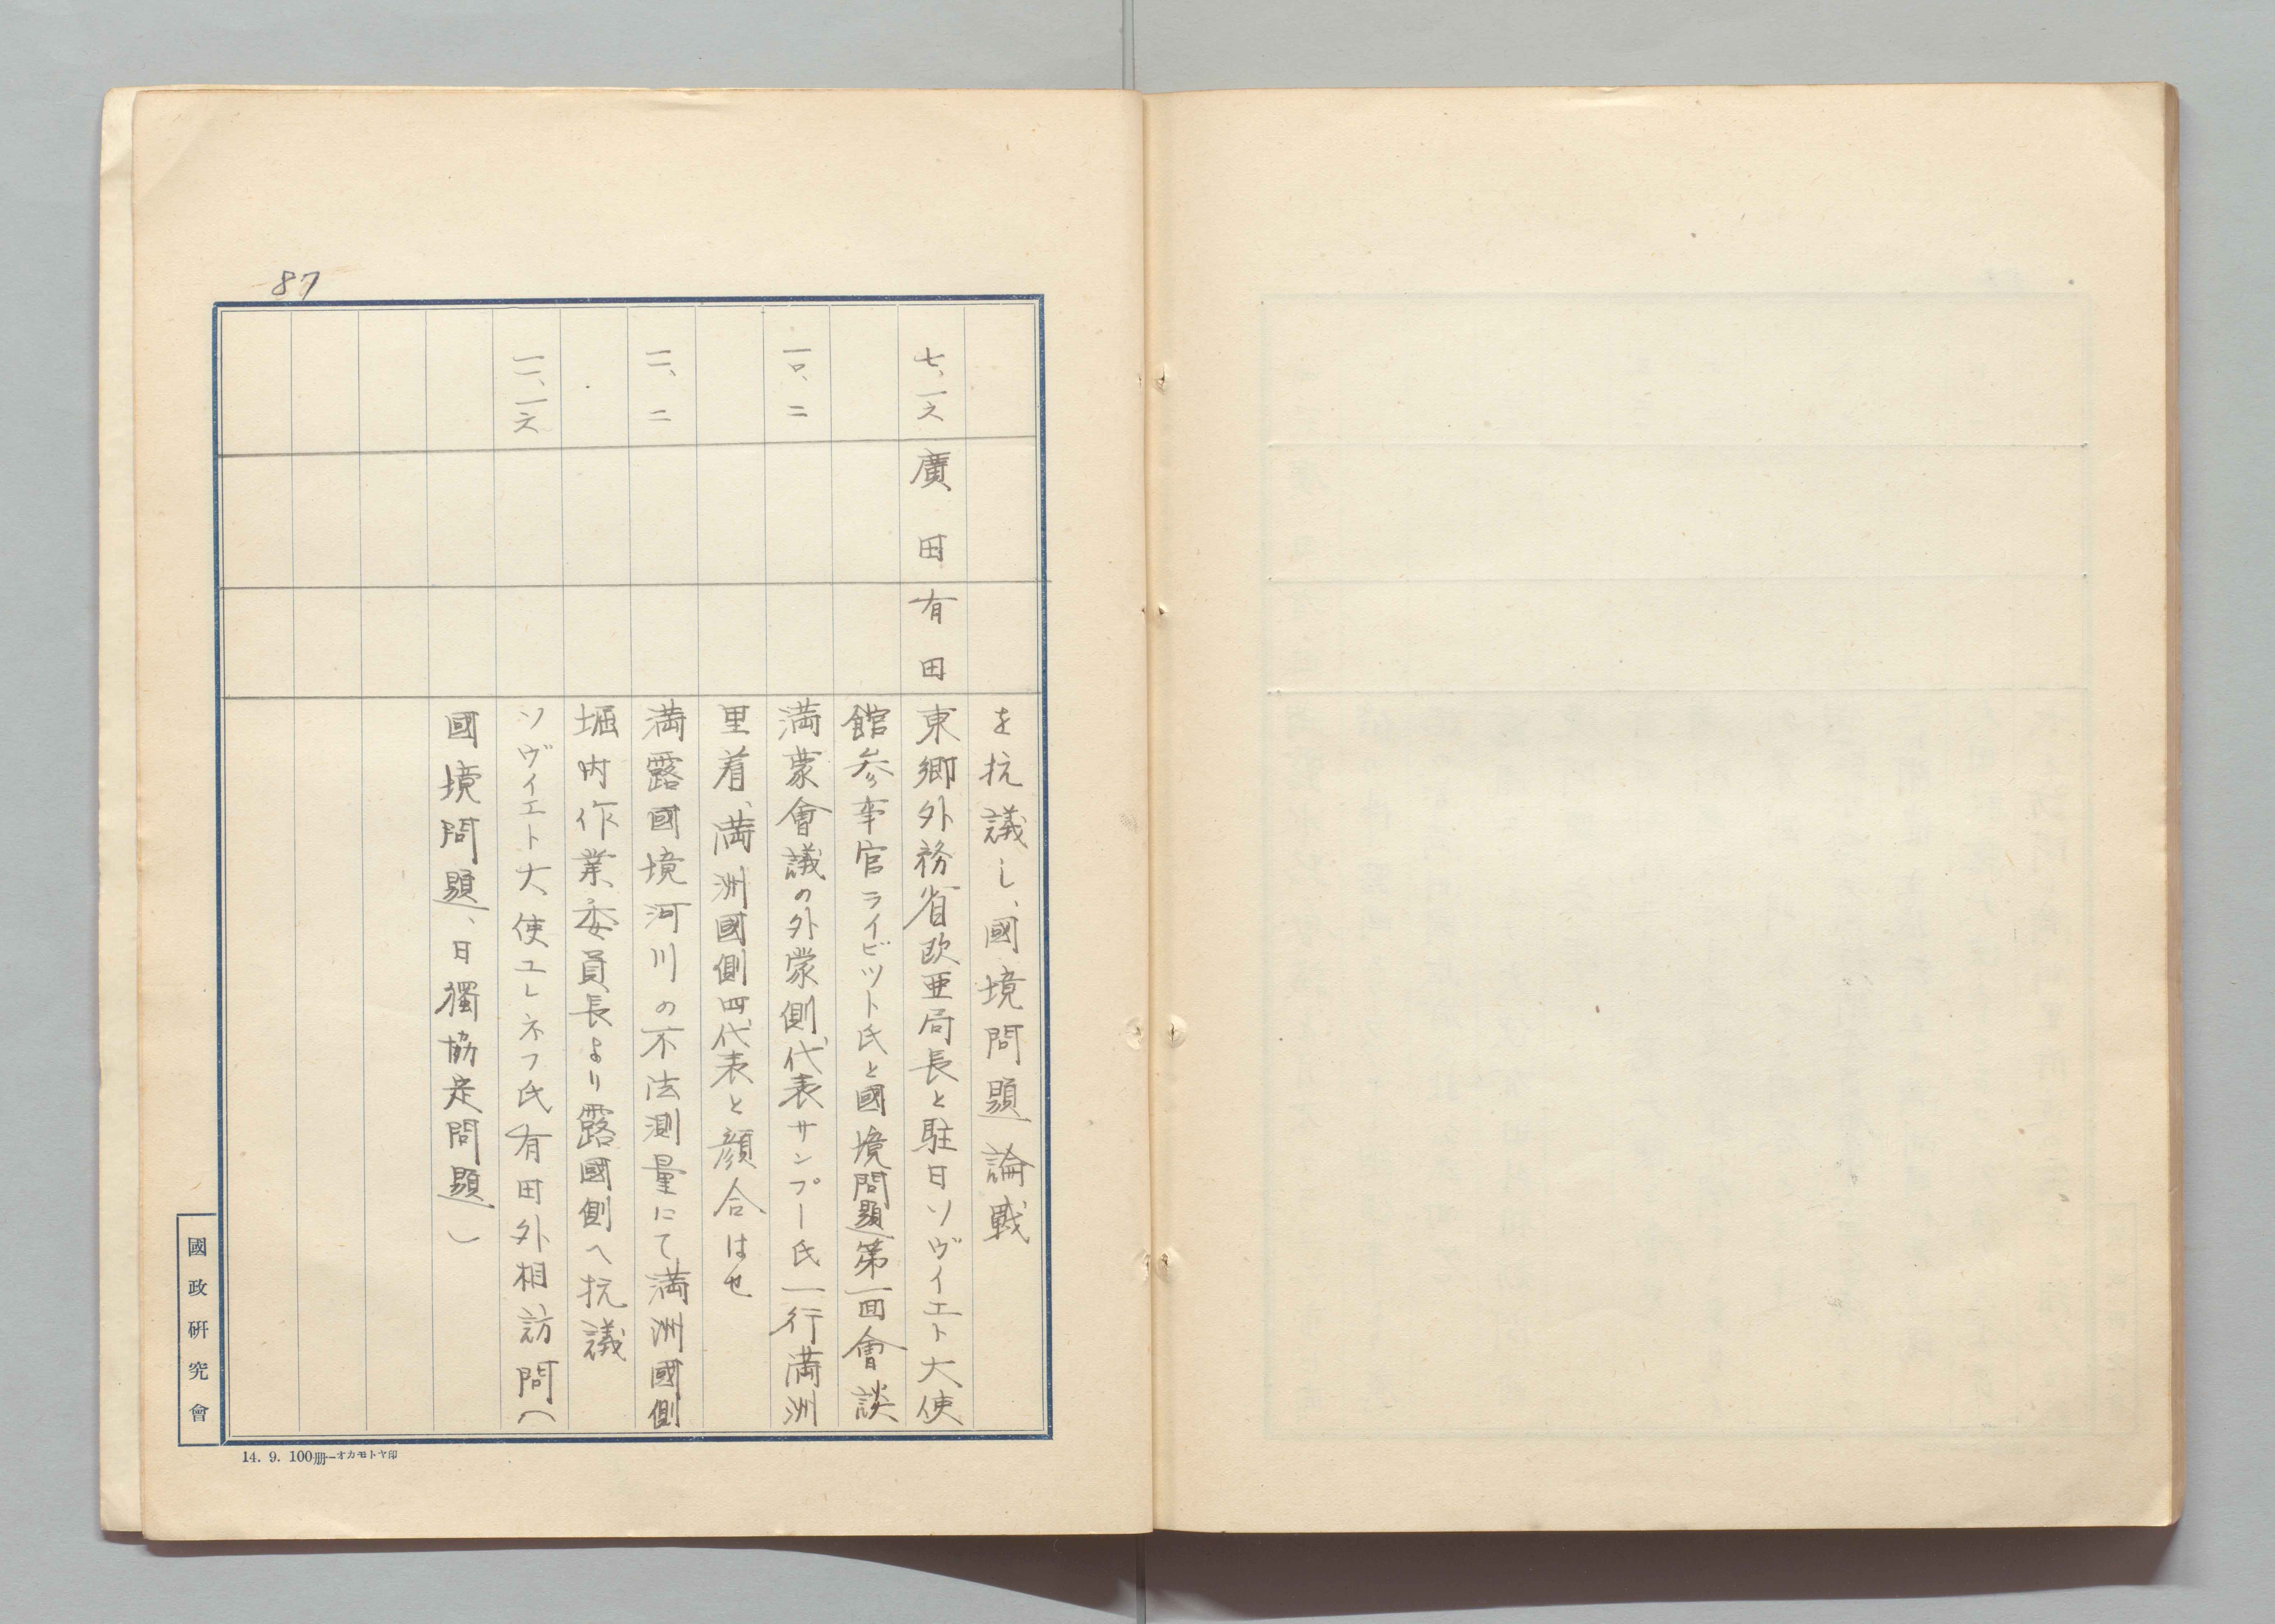 87
を抗議し、國境問題論戦
七、一六 廣田 有田 東郷外務省欧亜局長と駐日ソヴィエト大使
館参事官ライビット氏と國境問題第一回會談
一〇、二 満蒙會議の外蒙側代表サンプー氏一行満洲
里着、満洲國側四代表と顔合はせ
一一、二 満露國境河川の不法測量にて満洲國側
堀内作業委員長より露國側へ抗議
一一、一六 ソヴィエト大使ユレネフ氏有田外相訪問(
國境問題、日獨協定問題)
國政研究會
14. 9. 100册—オカモトヤ印